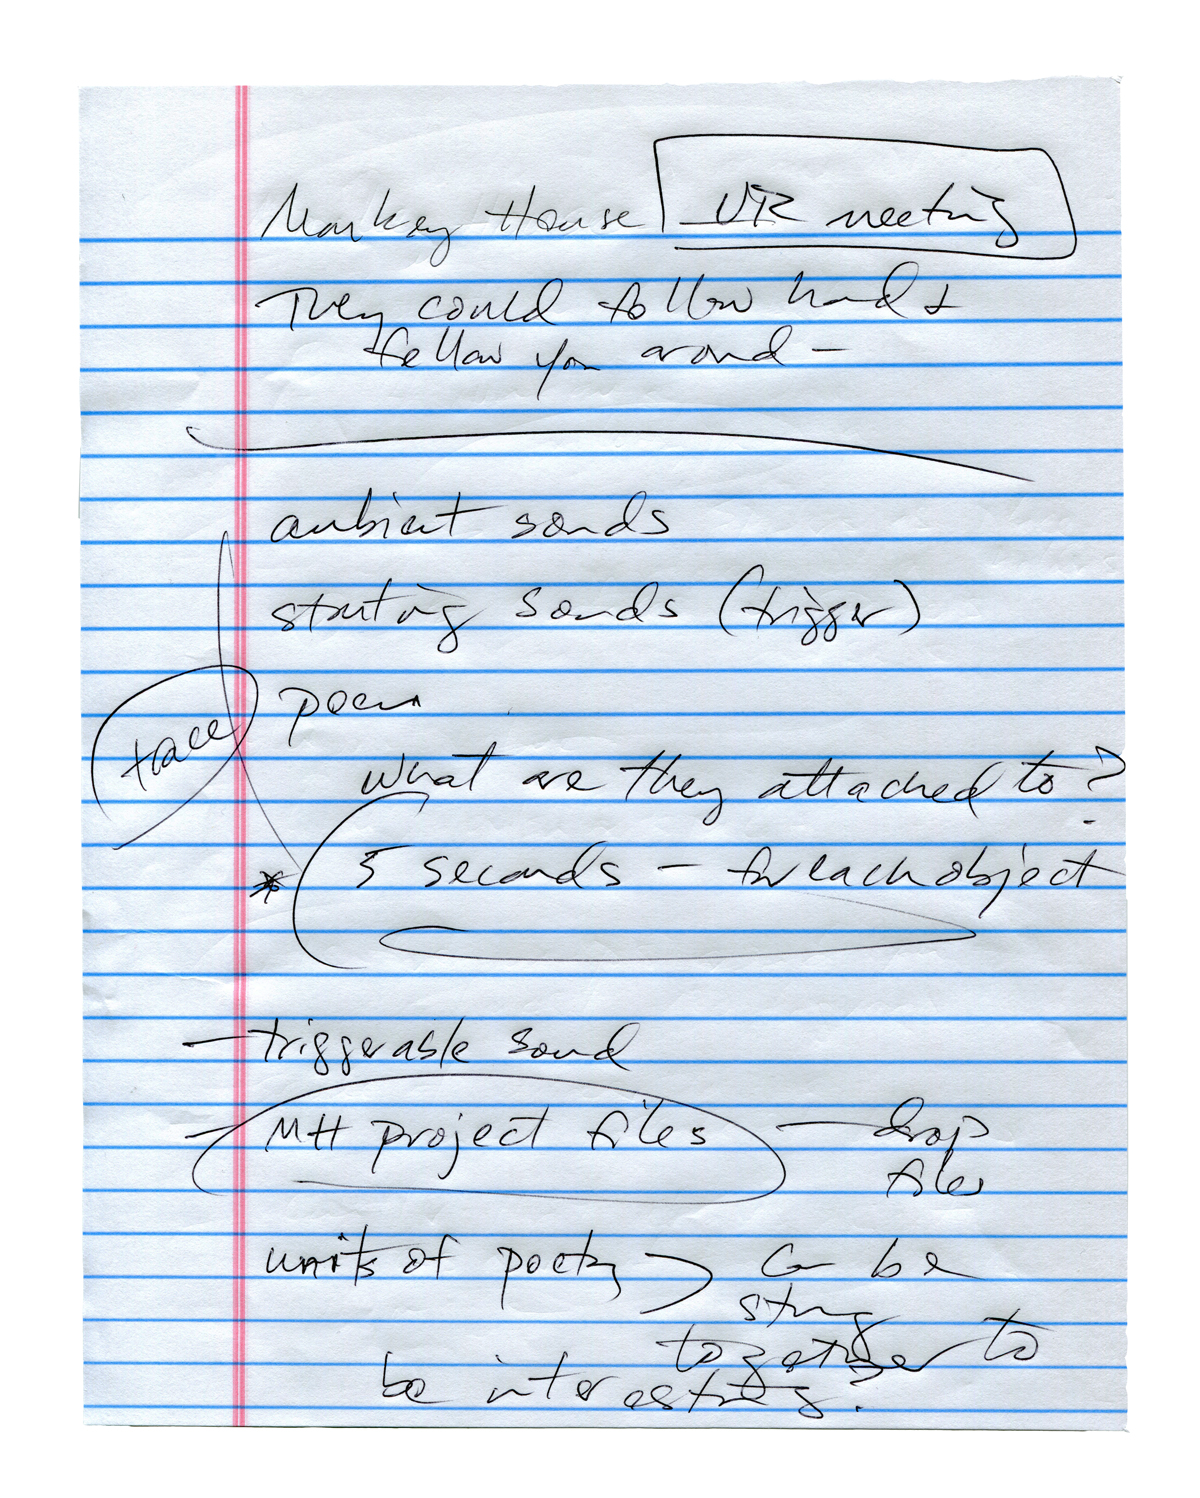 Monkey House VR meeting
They could follow hand &
follow you around —
ambient sounds
starting sounds (trigger)
poem
trace
what are they attached to?
* 5 seconds — for each object
— triggerable sound
— MH project files — drop
files
units of poetry > Can be
string
together to
be interesting?